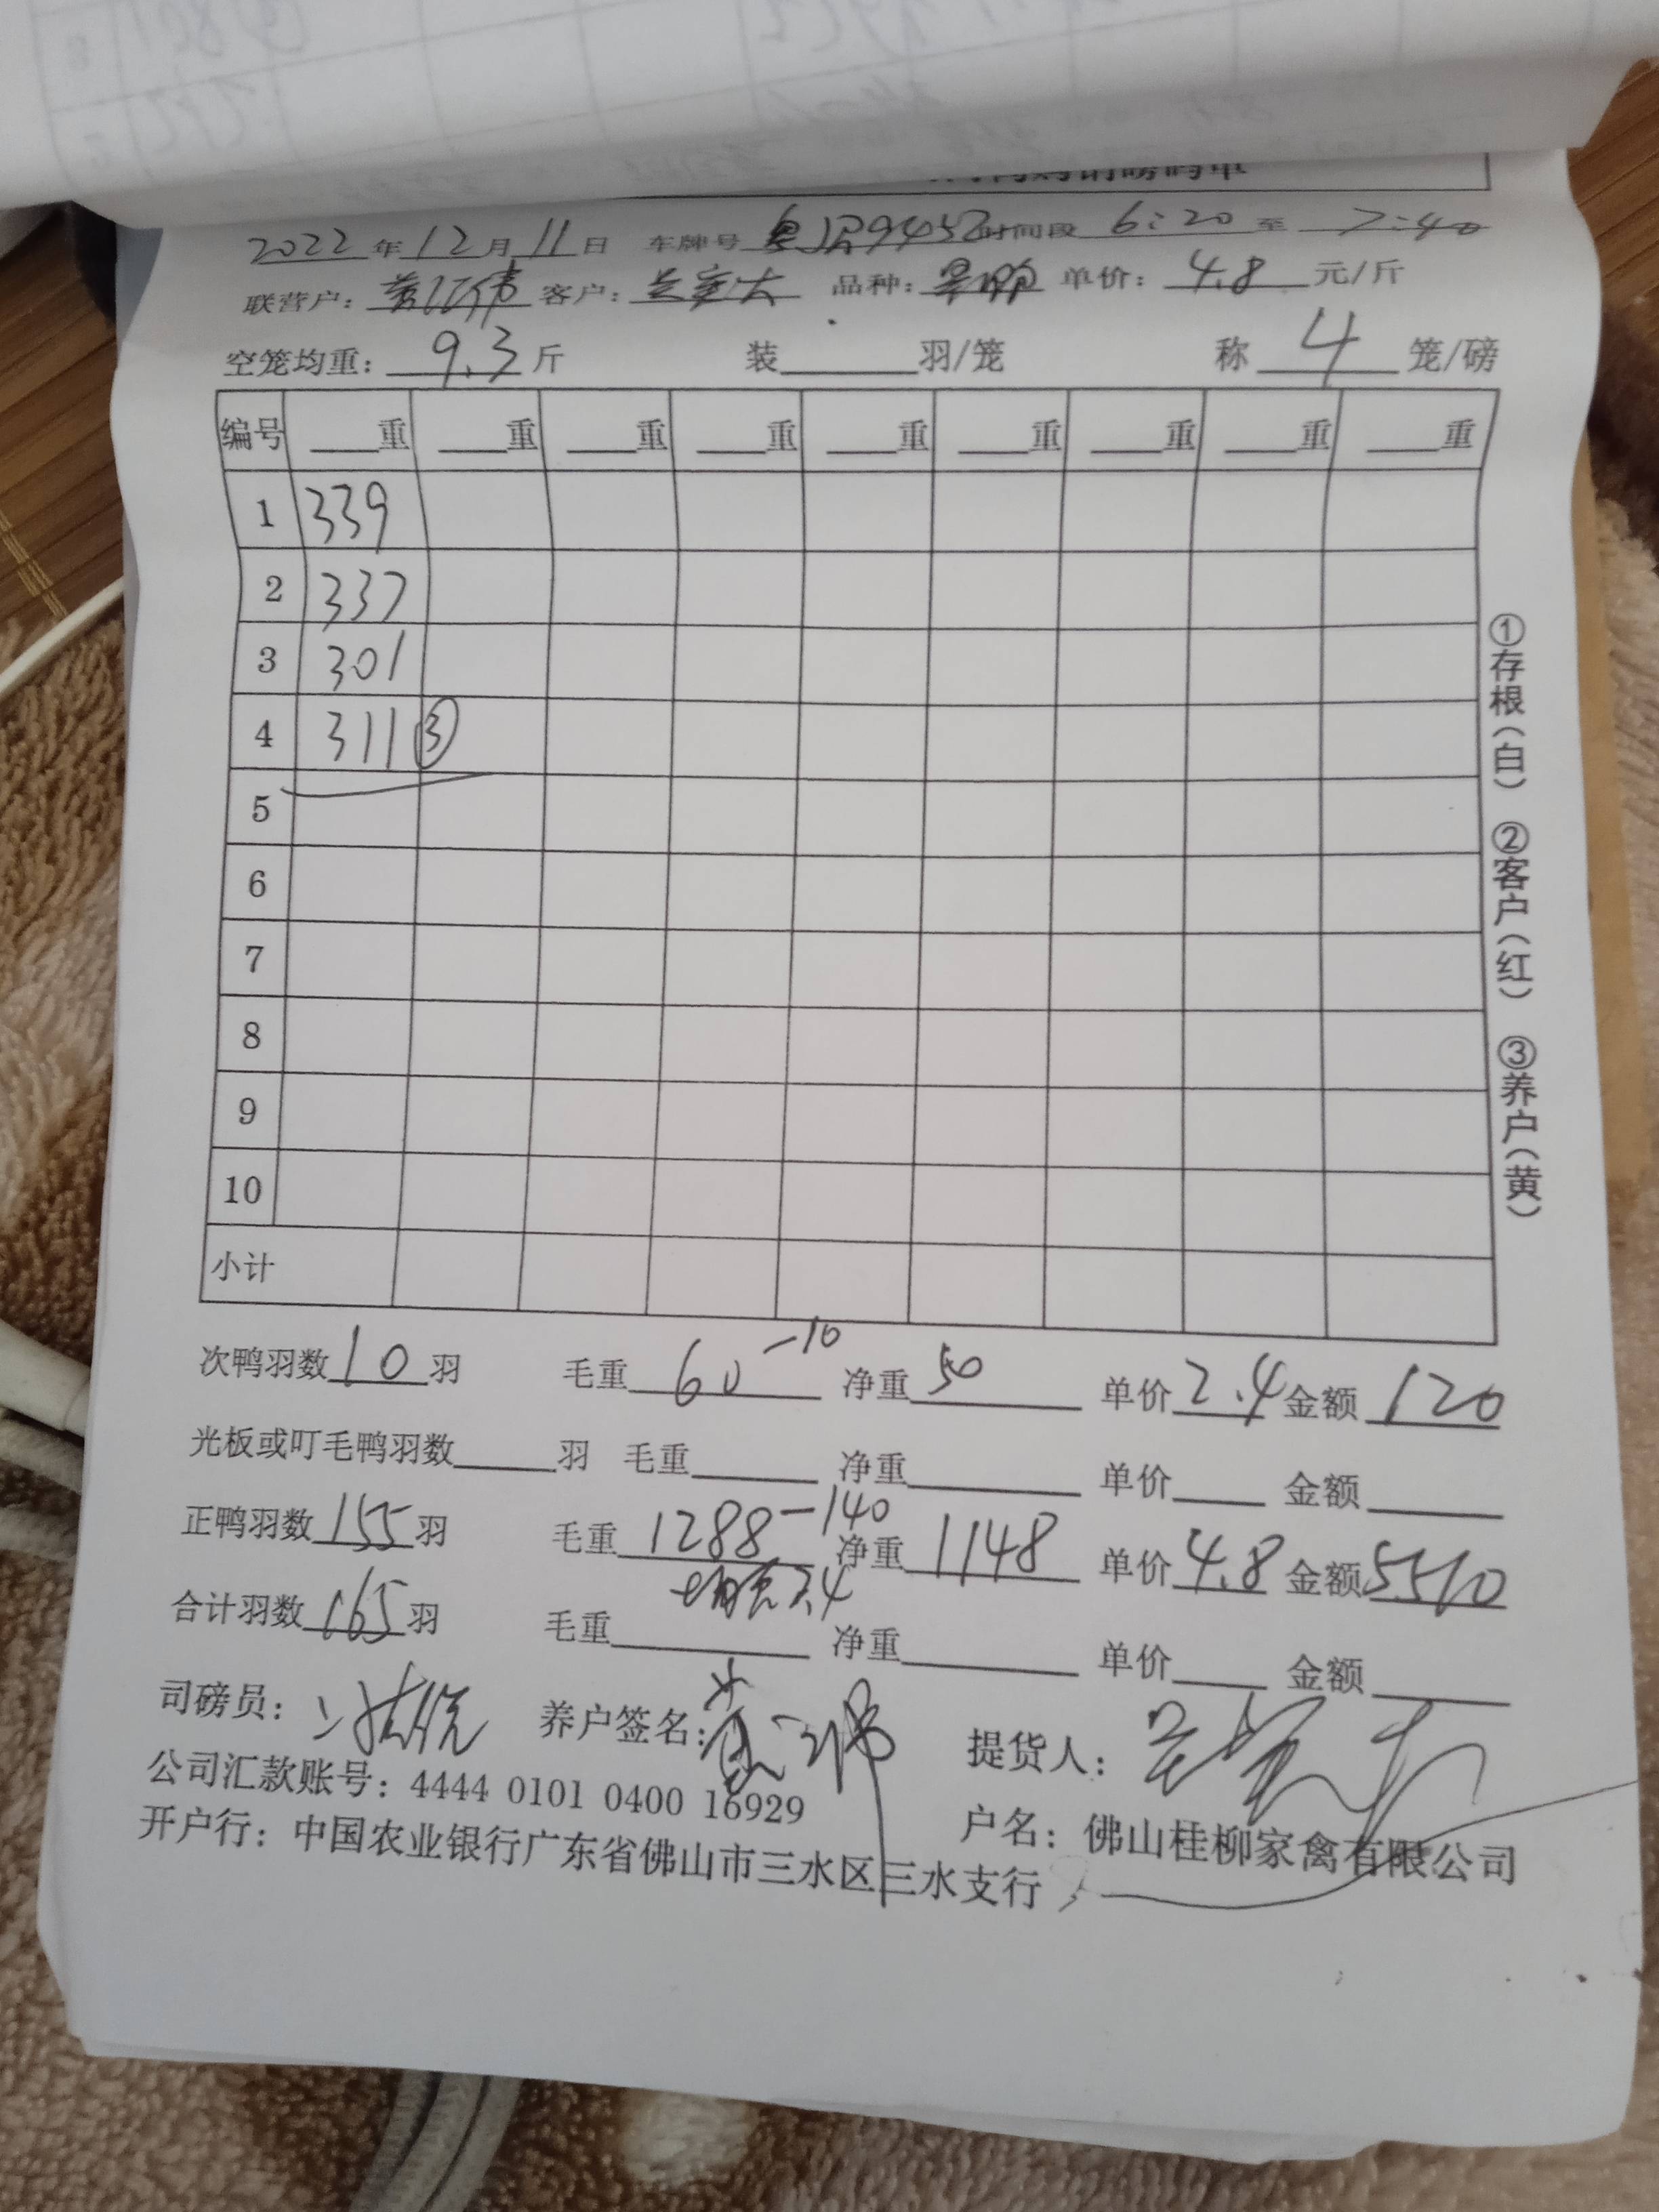 2022年12月11日 车牌号 时间段 6:20 至 7:40
联营户: 客户: 品种: 单价: 4.8 元/斤
空笼均重: 9.3 斤 装____羽/笼 称 4 笼/磅
编号 ___重 ___重 ___重 ___重 ___重 ___重 ___重 ___重 ___重
1 339
2 337
3 301
4 311 ③
5
6
7
8
9
10
小计
①存根(白) ②客户(红) ③养户(黄)
次鸭羽数 10 羽 毛重 60-10 净重 50 单价 2.4 金额 120
光板或叮毛鸭羽数____羽 毛重____ 净重____ 单价____ 金额____
正鸭羽数 155 羽 毛重 1288-140 净重 1148 单价 4.8 金额 5510
合计羽数 165 羽 毛重____ 净重____ 单价____ 金额____
司磅员: 养户签名: 提货人:
公司汇款账号: 4444 0101 0400 16929 户名: 佛山桂柳家禽有限公司
开户行: 中国农业银行广东省佛山市三水区三水支行